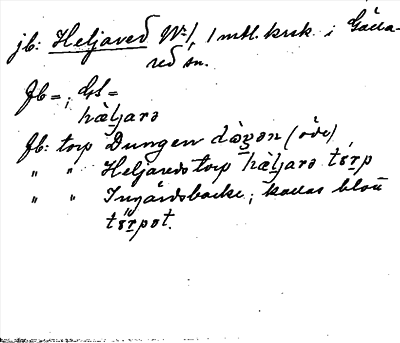 jb: Heljared No 1, 1 mtl. krk. i Gälla-
red sn.
Jb=; GS=
hàljarə
fb: torp Dungen dòŋən (öde)
" " Heljaredstorp hàljarə tŏrp
" " Ingärdsbacke; kallas blott
tŏrpət.